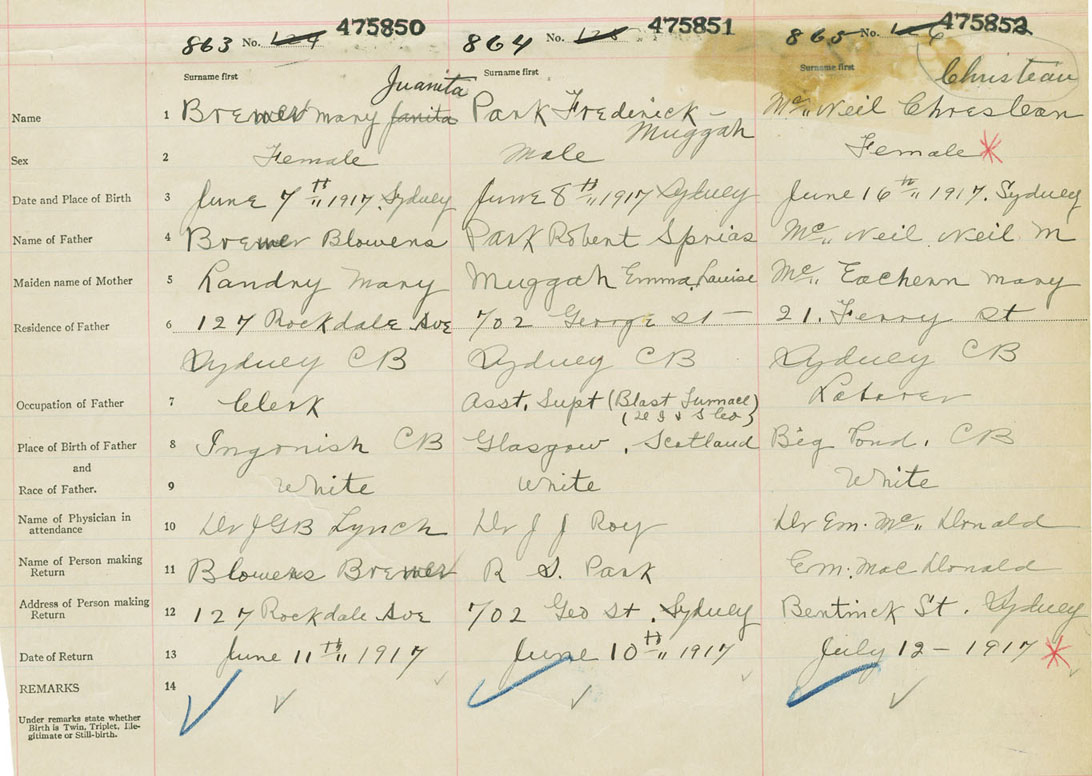 863 No. 124 475850 864 No. 125 475851 865 No. 475852
Surname first Surname first Surname first
Juanita Christeau
Name 1 Brewer Mary Janita Park Frederick - Mc,, Neil Chreslean
Muggah
Sex 2 Female Male Female *
Date and Place of Birth 3 June 7th,, 1917. Sydney June 8th,, 1917 Sydney June 16th,, 1917. Sydney
Name of Father 4 Brewer Blowens Park Robert Sprias Mc,, Neil Neil M
Maiden name of Mother 5 Landry Mary Muggah Emma Louise Mc,, Eachern Mary
Residence of Father 6 127 Rockdale Ave 702 George St - 21. Ferry St
Sydney CB Sydney CB Sydney CB
Occupation of Father 7 Clerk Asst. Supt (Blast Furnace) Laborer
Place of Birth of Father 8 Ingonish CB Glasgow, Scotland Big Pond. CB
and
Race of Father. 9 White White White
Name of Physician in attendance 10 Dr J G B Lynch Dr J J Roy Dr Em. Mc,, Donald
Name of Person making Return 11 Blowens Brewer R S. Park Em. Mac Donald
Address of Person making Return 12 127 Rockdale Ave 702 Geo St. Sydney Bentinck St. Sydney
Date of Return 13 June 11th,, 1917 June 10th,, 1917 July 12 - 1917 *
REMARKS 14
Under remarks state whether
Birth is Twin, Triplet, Ille-
gitimate or Still-birth.